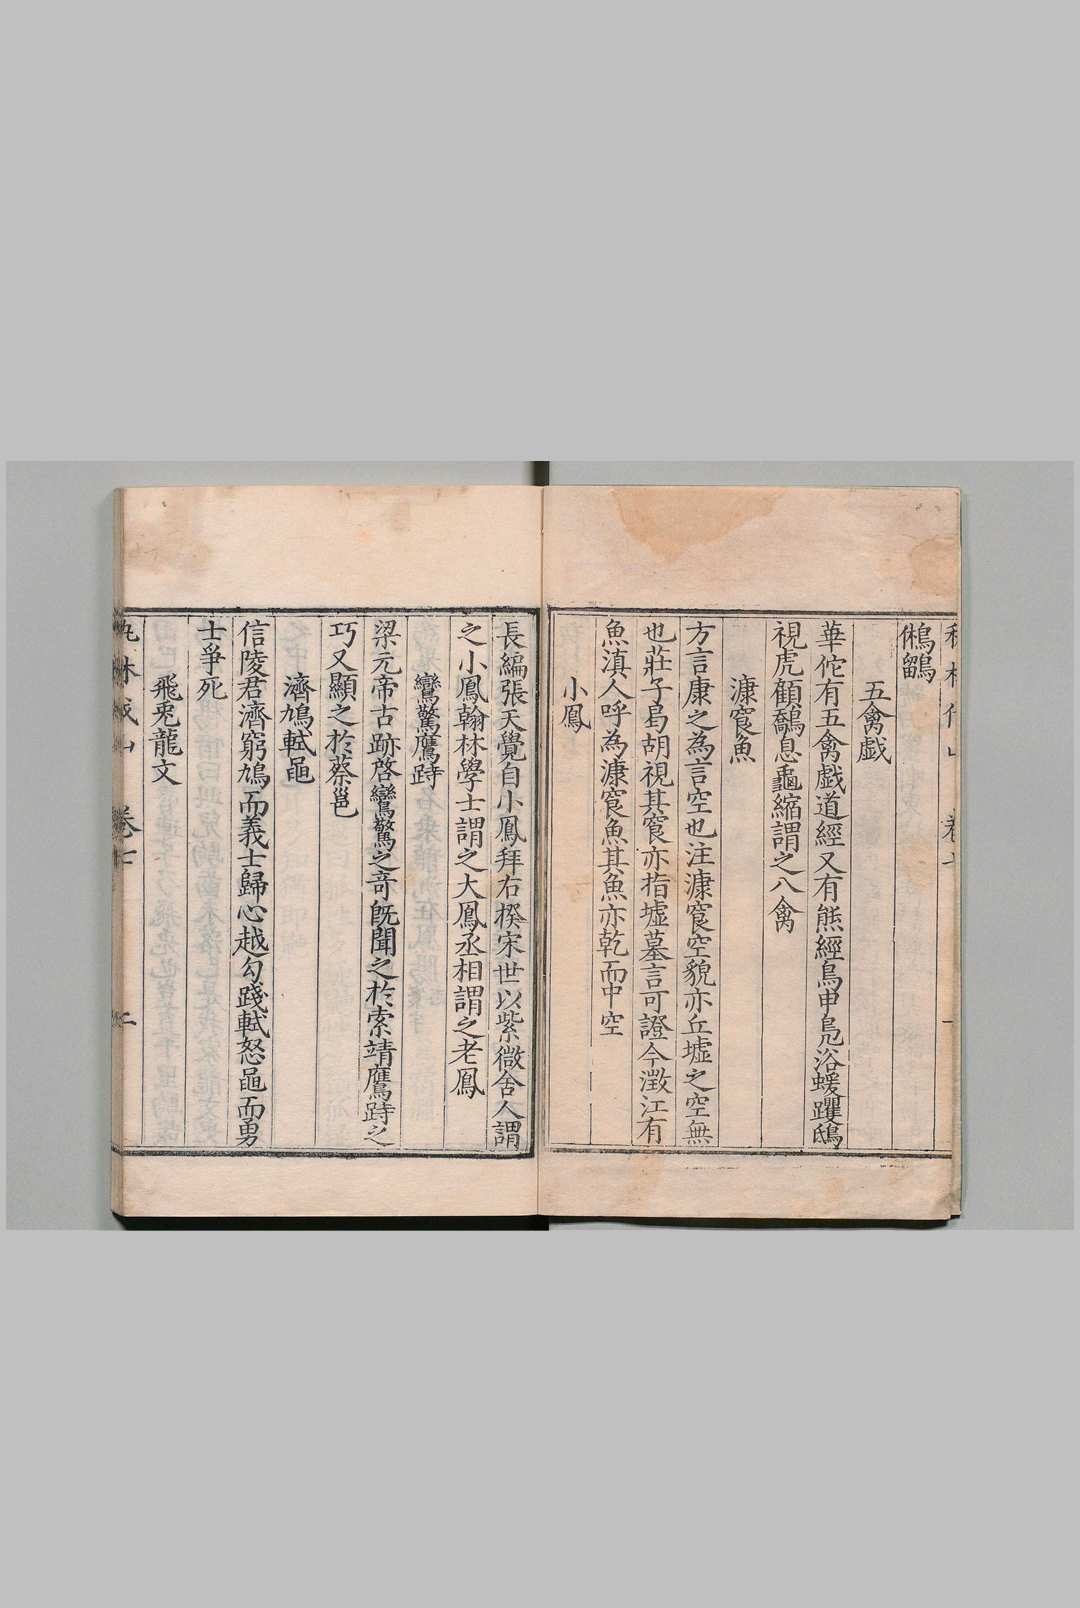 鵂鶹
五禽戯
華佗有五禽戯道經又有熊經鳥申鳬浴蝯躩鴟
視虎顧鷮息龜縮謂之八禽
漮㝗魚
方言康之為言空也注漮㝗空貌亦丘墟之空無
也莊子曷胡視其㝗亦指墟墓言可證今澂江有
魚滇人呼為漮㝗魚其魚亦乾而中空
小鳳
長編張天覺自小鳳拜右揆宋世以紫微舍人謂
之小鳳翰林學士謂之大鳳丞相謂之老鳳
鸞驚鷹跱
梁元帝古跡啓鸞驚之竒旣聞之於索靖鷹跱之
巧又顯之於蔡邕
濟鳩軾黽
信陵君濟窮鳩而義士歸心越勾踐軾怒黽而勇
士爭死
飛兎龍文
卷七 二